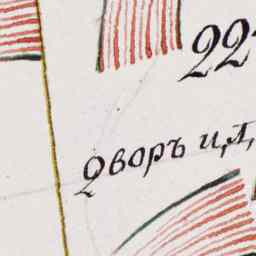 22
Дворъ и,л,